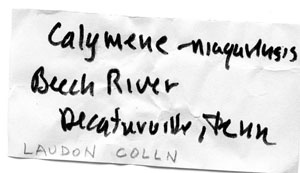 Calymene niagarensis
Beech River
Decaturville, Tenn
LAUDON COLLN